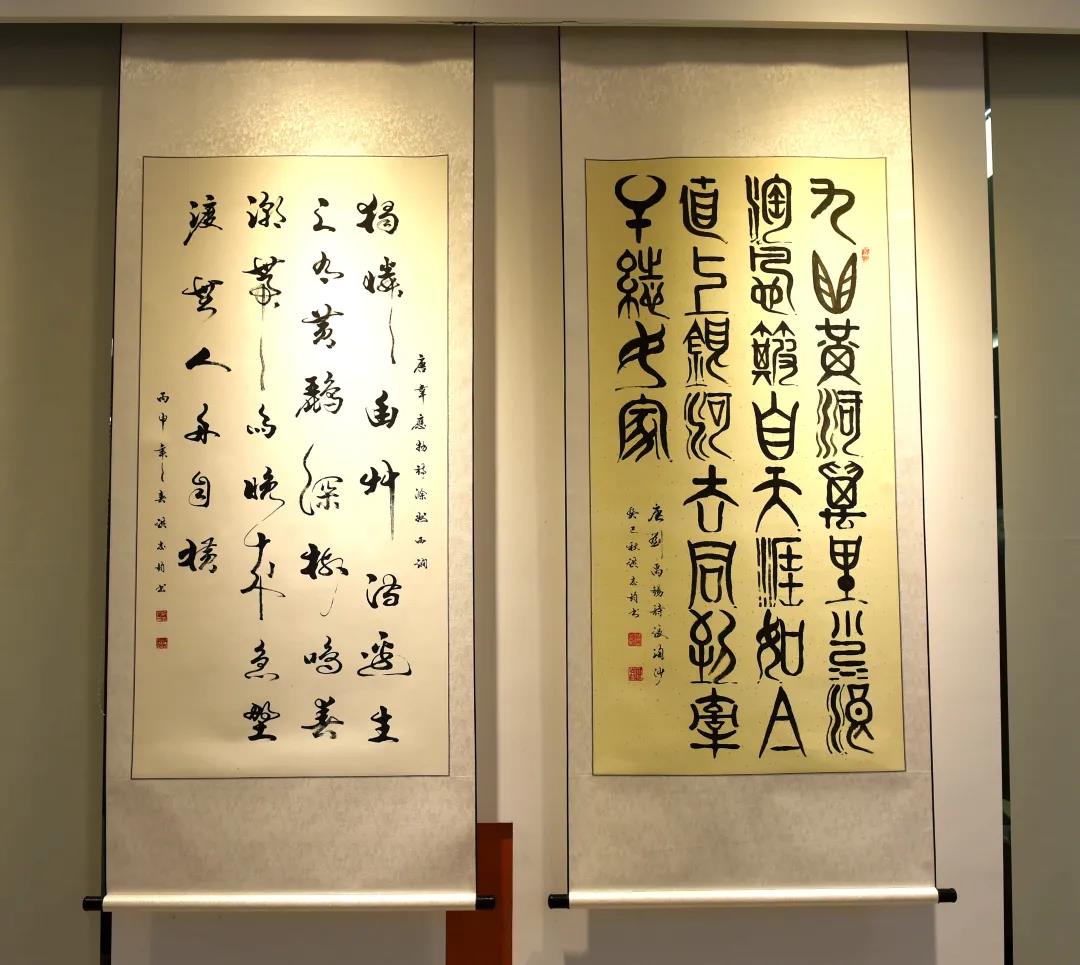 九曲黃河萬里沙浪
淘風簸自天涯如今
直上銀河去同到牽
牛織女家
唐劉禹錫詩浪淘沙
癸巳秋志韵书
唐韋應物詩滁州西澗
獨憐幽艸澗邊生
上有黃鸝深樹鳴春
潮帶雨晚來急野
渡無人舟自橫
丙申年之春志韵书